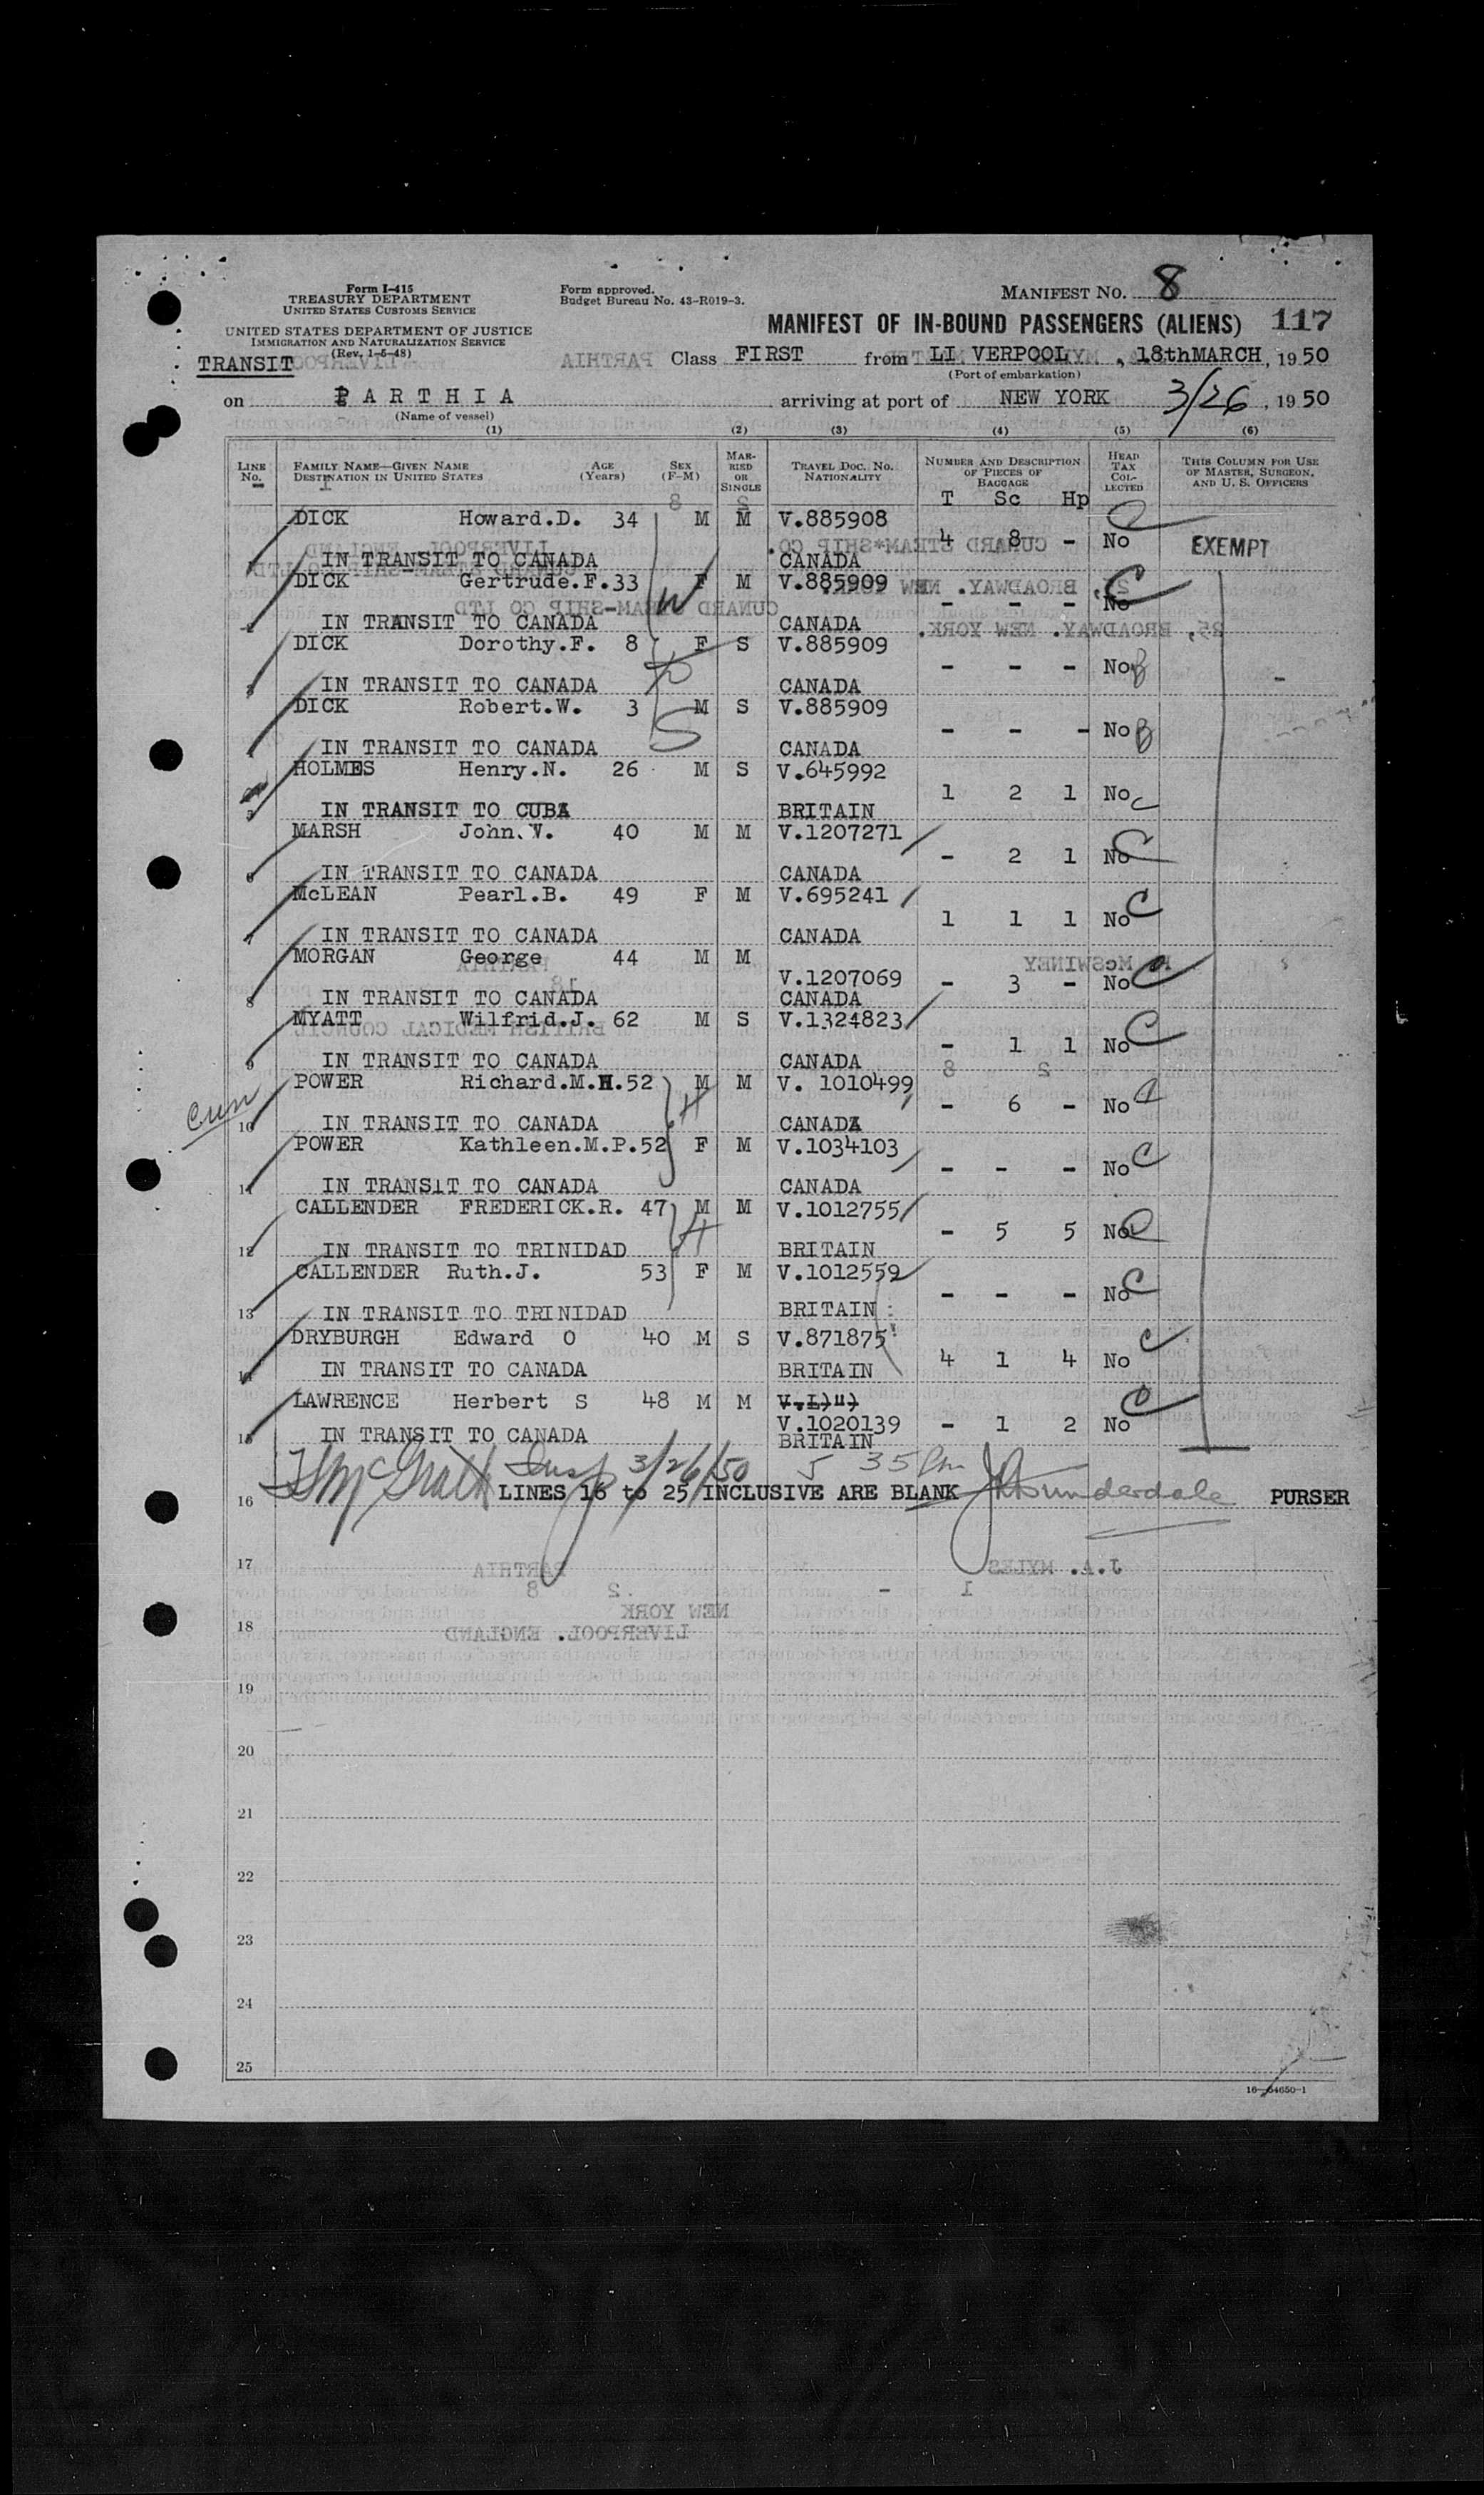 Form I-415
TREASURY DEPARTMENT
UNITED STATES CUSTOMS SERVICE
UNITED STATES DEPARTMENT OF JUSTICE
IMMIGRATION AND NATURALIZATION SERVICE
(Rev. 1-5-48)
Form approved.
Budget Bureau No. 43-R019-3.
MANIFEST No. 8
MANIFEST OF IN-BOUND PASSENGERS (ALIENS) 117
TRANSIT Class FIRST from LI VERPOOL, 18thMARCH, 1950
(Port of embarkation)
on PARTHIA arriving at port of NEW YORK 3/26, 1950
(Name of vessel)
(1) (2) (3) (4) (5) (6)
LINE No. FAMILY NAME—GIVEN NAME DESTINATION IN UNITED STATES AGE (Years) SEX (F-M) MARRIED OR SINGLE TRAVEL DOC. NO. NATIONALITY NUMBER AND DESCRIPTION OF PIECES OF BAGGAGE HEAD TAX COLLECTED THIS COLUMN FOR USE OF MASTER, SURGEON, AND U. S. OFFICERS
T Sc Hp
DICK Howard.D. 34 M M V.885908
4 8 - No EXEMPT
IN TRANSIT TO CANADA CANADA
DICK Gertrude.F. 33 F M V.885909
- - - No
2 IN TRANSIT TO CANADA CANADA
DICK Dorothy.F. 8 F S V.885909
- - - No
3 IN TRANSIT TO CANADA CANADA
DICK Robert.W. 3 M S V.885909
- - - No
4 IN TRANSIT TO CANADA CANADA
HOLMES Henry.N. 26 M S V.645992
1 2 1 No
5 IN TRANSIT TO CUBA BRITAIN
MARSH John.V. 40 M M V.1207271
- 2 1 No
6 IN TRANSIT TO CANADA CANADA
McLEAN Pearl.B. 49 F M V.695241
1 1 1 No
7 IN TRANSIT TO CANADA CANADA
MORGAN George 44 M M
V.1207069 - 3 - No
8 IN TRANSIT TO CANADA CANADA
MYATT Wilfrid.J. 62 M S V.1324823
- 1 1 No
9 IN TRANSIT TO CANADA CANADA
POWER Richard.M.H. 52 M M V. 1010499
- 6 - No
10 IN TRANSIT TO CANADA CANADA
POWER Kathleen.M.P. 52 F M V.1034103
- - - No
11 IN TRANSIT TO CANADA CANADA
CALLENDER FREDERICK.R. 47 M M V.1012755
- 5 5 No
12 IN TRANSIT TO TRINIDAD BRITAIN
CALLENDER Ruth.J. 53 F M V.1012559
- - - No
13 IN TRANSIT TO TRINIDAD BRITAIN
DRYBURGH Edward O 40 M S V.871875
4 1 4 No
14 IN TRANSIT TO CANADA BRITAIN
LAWRENCE Herbert S 48 M M
V.1020139 - 1 2 No
15 IN TRANSIT TO CANADA BRITAIN
McGrath Insp 3/26/50 5 35 Pm
16 LINES 16 to 25 INCLUSIVE ARE BLANK PURSER
17
18
19
20
21
22
23
24
25
16—54650-1